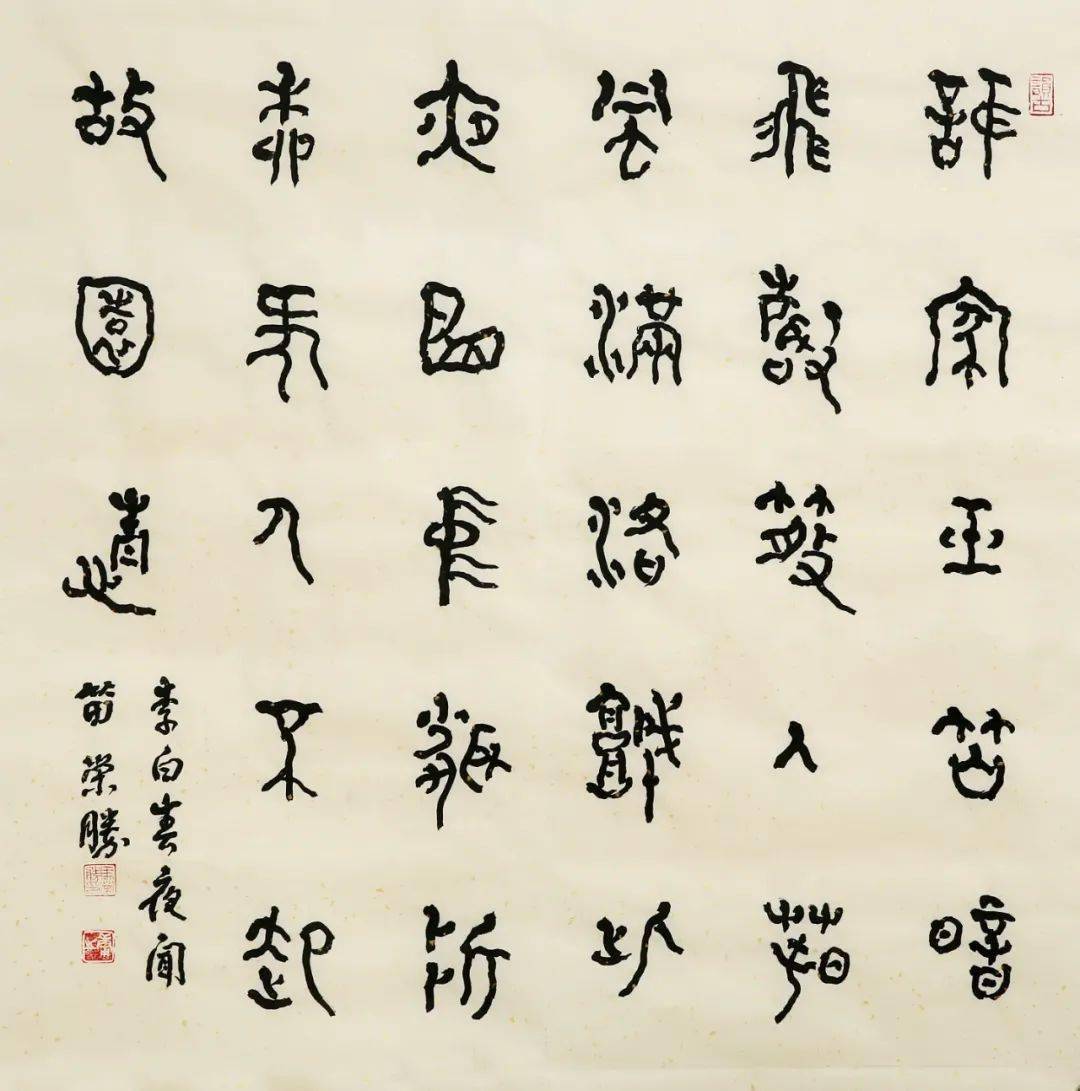 誰家玉笛暗
飛聲散入春
風滿洛城此
夜曲中聞折
柳何人不起
故園情
李白春夜聞
笛 榮勝